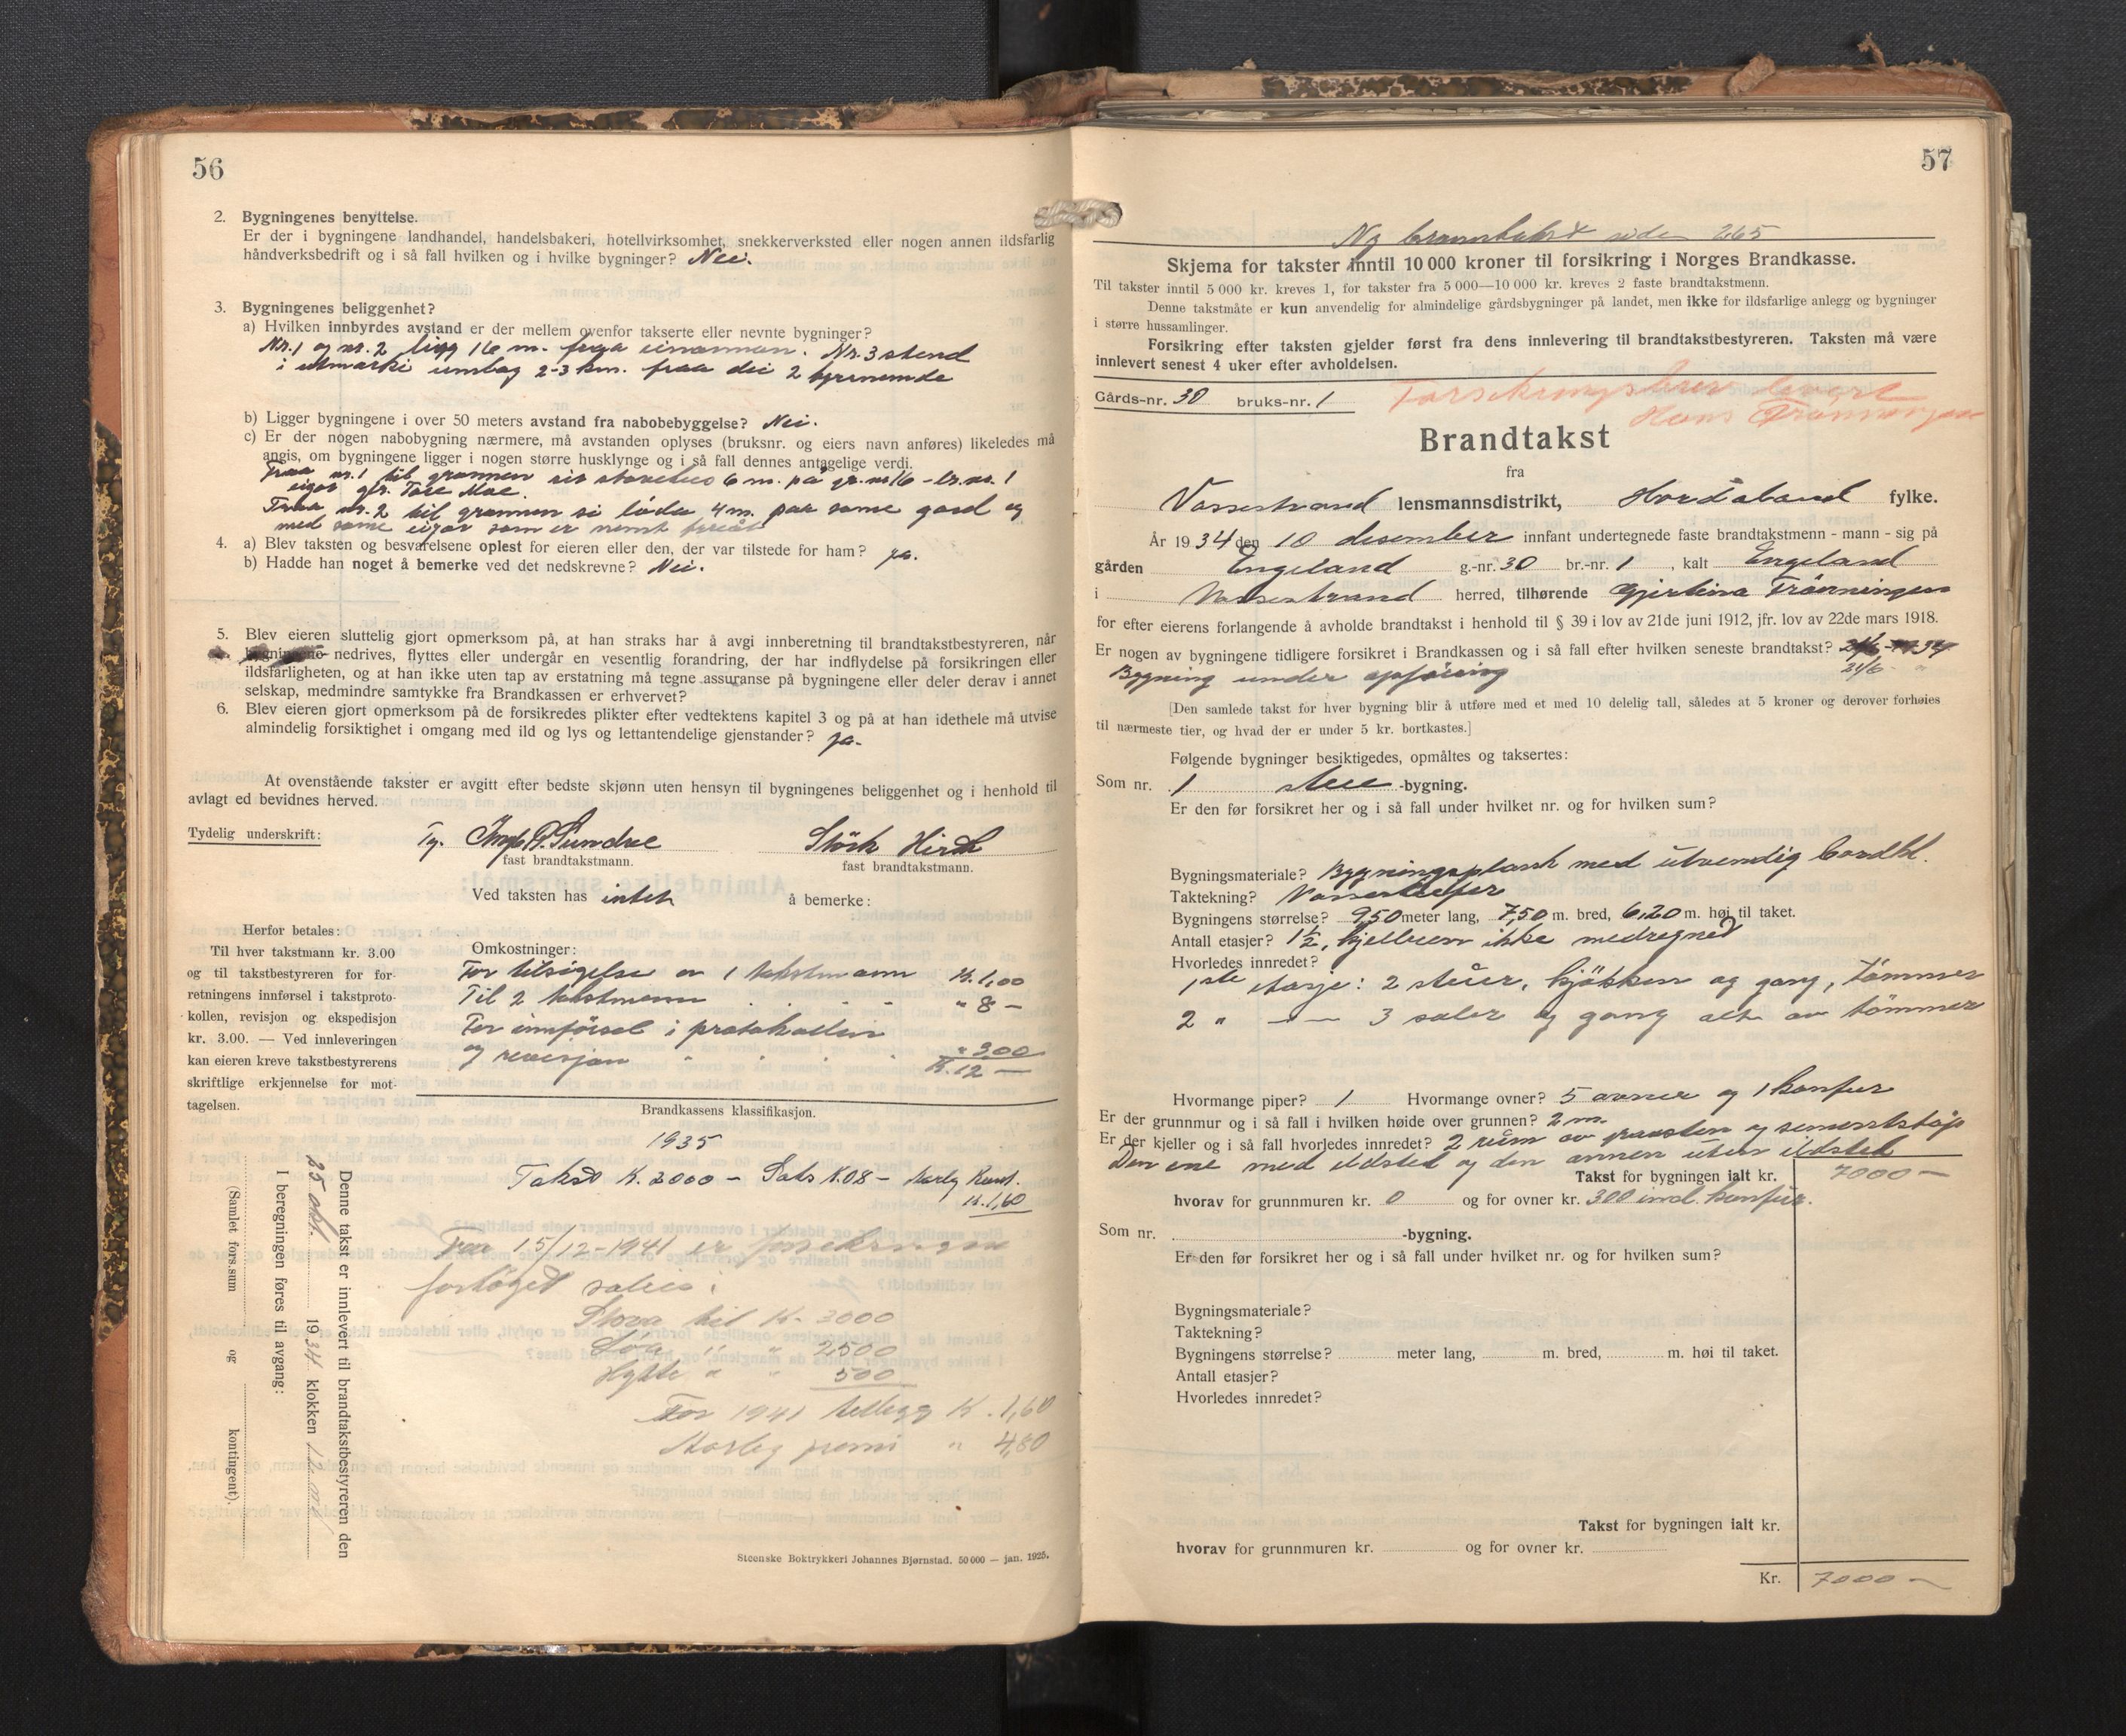 56
2. Bygningenes benyttelse.
Er der i bygningene landhandel, handelsbakeri, hotellvirksomhet, snekkerverksted eller nogen annen ildsfarlig
håndverksbedrift og i så fall hvilken og i hvilke bygninger? Nei.
3. Bygningenes beliggenhet?
a) Hvilken innbyrdes avstand er der mellem ovenfor takserte eller nevnte bygninger?
Nr. 1 og nr. 2 ligg 16 m. fraa einannan. Nr. 3 stend
i utmarki umlag 2-3 km. fraa dei 2 fyrrnemde
b) Ligger bygningene i over 50 meters avstand fra nabobebyggelse? Nei.
c) Er der nogen nabobygning nærmere, må avstanden oplyses (bruksnr. og eiers navn anføres) likeledes må
angis, om bygningene ligger i nogen større husklynge og i så fall dennes antagelige verdi.
Fraa nr. 1 til grannen sit stovehus 6 m. på gr. nr. 16 - br. nr. 1
eigar Tore Moe.
Fraa nr. 2 til grannen si løda 4 m. paa same gard og
med same eigar som er nemnt
4. a) Blev taksten og besvarelsene oplest for eieren eller den, der var tilstede for ham? ja.
b) Hadde han noget å bemerke ved det nedskrevne? Nei.
5. Blev eieren sluttelig gjort opmerksom på, at han straks har å avgi innberetning til brandtakstbestyreren, når
bygningene nedrives, flyttes eller undergår en vesentlig forandring, der har indflydelse på forsikringen eller
ildsfarligheten, og at han ikke uten tap av erstatning må tegne assuranse på bygningene eller deler derav i annet
selskap, medmindre samtykke fra Brandkassen er erhvervet?
6. Blev eieren gjort opmerksom på de forsikredes plikter efter vedtektens kapitel 3 og på at han idethele må utvise
almindelig forsiktighet i omgang med ild og lys og lettantendelige gjenstander? ja.
At ovenstående takster er avgitt efter bedste skjønn uten hensyn til bygningenes beliggenhet og i henhold til
avlagt ed bevidnes herved.
Tydelig underskrift: Sundve
fast brandtakstmann. fast brandtakstmann.
Ved taksten has intet å bemerke:
Herfor betales:
Til hver takstmann kr. 3.00
og til takstbestyreren for for-
retningens innførsel i takstproto-
kollen, revisjon og ekspedisjon
kr. 3.00. — Ved innleveringen
kan eieren kreve takstbestyrerens
skriftlige erkjennelse for mot-
tagelsen.
Omkostninger:
For tilsigelse av 1 takstmann K. 1,00
Til 2 takstmenn " 8 -
For innførsel i protokollen
og revisjon " 3,00
K. 12 -
Brandkassens klassifikasjon.
1935
Takst K. 2000 - Sats K. 08 - Aarleg Kont.
K. 1,60
Fraa 15/12-1941 er forsikringa
forhøget saleis:
Stova til K. 3000
Løa " " 2500
Hytte " " 500
For 1941 tillegg K. 1,60
Aarleg premi " 4,80
Denne takst er innlevert til brandtakstbestyreren den
25 okt. 1934 klokken
I beregningen føres til avgang:
(Samlet fors.sum og kontingent).
Steenske Boktrykkeri Johannes Bjørnstad. 50 000 — jan. 1925.
57
Ny branntakst side 265
Skjema for takster inntil 10 000 kroner til forsikring i Norges Brandkasse.
Til takster inntil 5 000 kr. kreves 1, for takster fra 5 000—10 000 kr. kreves 2 faste brandtakstmenn.
Denne takstmåte er kun anvendelig for almindelige gårdsbygninger på landet, men ikke for ildsfarlige anlegg og bygninger
i større hussamlinger.
Forsikring efter taksten gjelder først fra dens innlevering til brandtakstbestyreren. Taksten må være
innlevert senest 4 uker efter avholdelsen.
Gårds-nr. 30 bruks-nr. 1
Forsikringsbrev levert
Hans
Brandtakst
fra
Vossestrand lensmannsdistrikt, Hordaland fylke.
År 1934 den 10 desember innfant undertegnede faste brandtakstmenn - mann - sig på
gården Engeland g.-nr. 30 br.-nr. 1, kalt Engeland
i Vossestrand herred, tilhørende Gjertina
for efter eierens forlangende å avholde brandtakst i henhold til § 39 i lov av 21de juni 1912, jfr. lov av 22de mars 1918.
Er nogen av bygningene tidligere forsikret i Brandkassen og i så fall efter hvilken seneste brandtakst?
Bygning under opføring 21/6 - "
[Den samlede takst for hver bygning blir å utføre med et med 10 delelig tall, således at 5 kroner og derover forhøies
til nærmeste tier, og hvad der er under 5 kr. bortkastes.]
Følgende bygninger besiktigedes, opmåltes og taksertes:
Som nr. 1 stue -bygning.
Er den før forsikret her og i så fall under hvilket nr. og for hvilken sum?
Bygningsmateriale? Bygningsplank med utvendig bordkl.
Taktekning? Vosseskifer
Bygningens størrelse? 9,50 meter lang, 7,50 m. bred, 6,20 m. høi til taket.
Antall etasjer? 1½, kjelleren ikke medregned
Hvorledes innredet?
1ste etasje: 2 stuer, kjøkken og gang, tømmer
2 " — 3 saler og gang alt av tømmer
Hvormange piper? 1 Hvormange ovner? 5 ovner og 1 komfur
Er der grunnmur og i så fall i hvilken høide over grunnen? 2 m.
Er der kjeller og i så fall hvorledes innredet? 2 rum av graasten og sementstøp
Den ene med ildsted og den annen uten ildsted
Takst for bygningen ialt kr. 7000 -
hvorav for grunnmuren kr. 0 og for ovner kr. 300 incl. komfur.
Som nr. -bygning.
Er den før forsikret her og i så fall under hvilket nr. og for hvilken sum?
Bygningsmateriale?
Taktekning?
Bygningens størrelse? meter lang, m. bred, m. høi til taket.
Antall etasjer?
Hvorledes innredet?
Takst for bygningen ialt kr.
hvorav for grunnmuren kr. og for ovner kr.
Kr. 7000 -